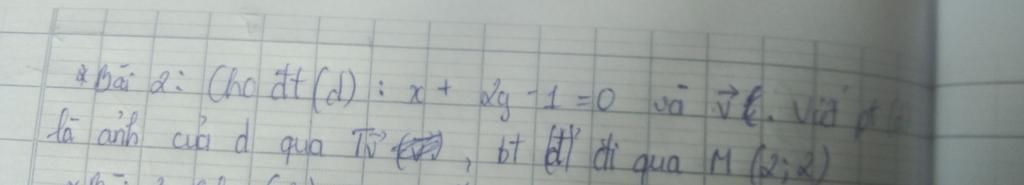 * Bài 2: Cho đt (d) : x + 2y - 1 = 0 và v⃗. Viết pt
là ảnh của d qua Tv⃗, bt (d') đi qua M (2; 2)